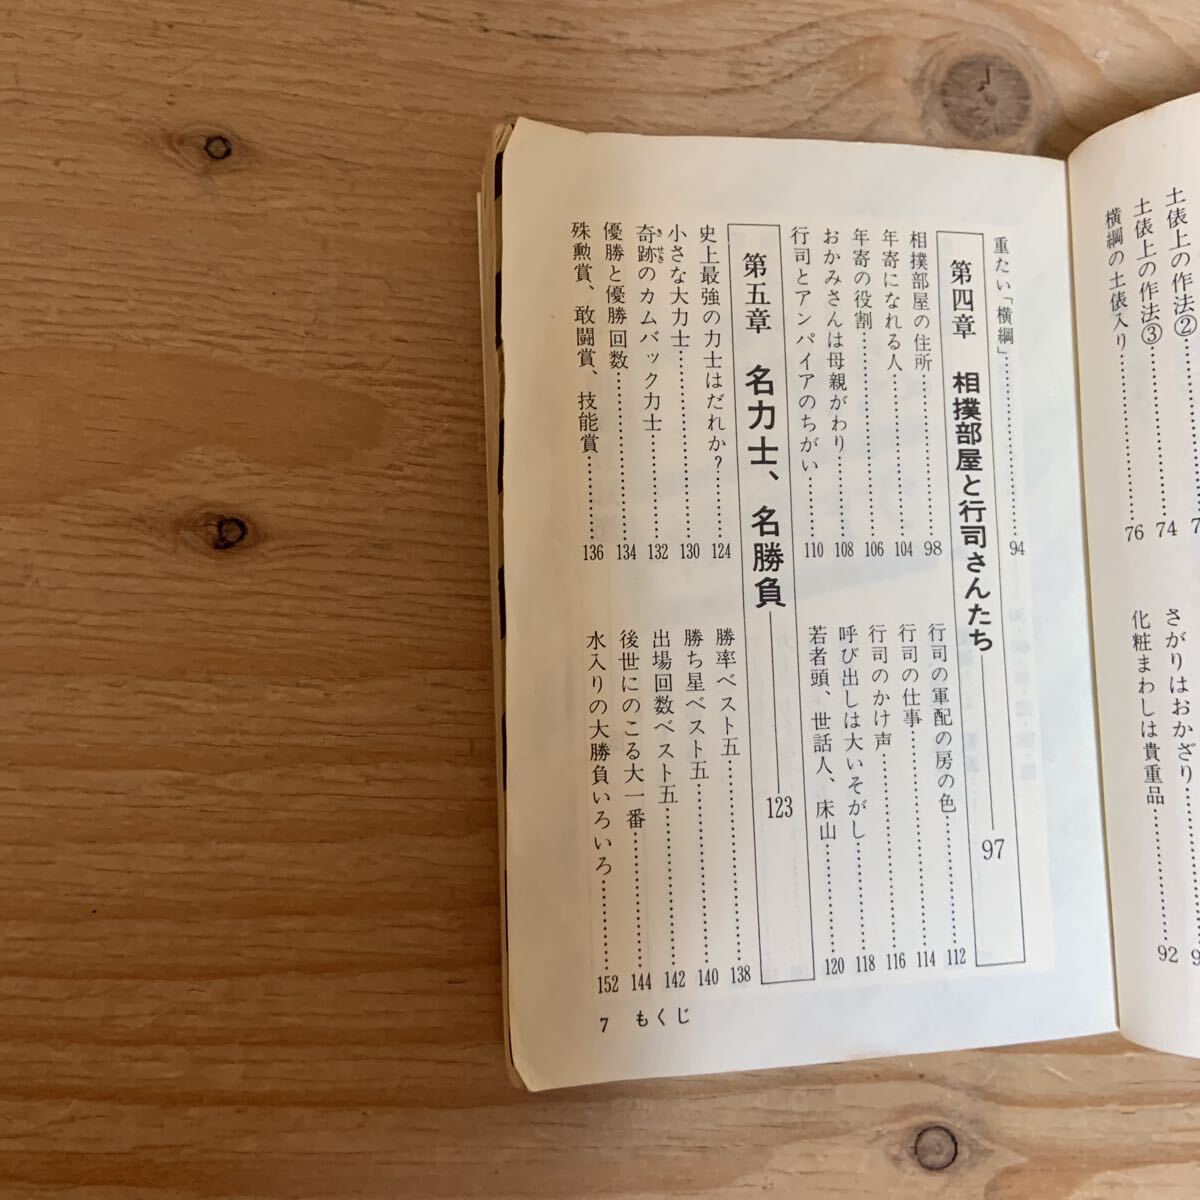 土俵上の作法②……7
土俵上の作法③……74
横綱の土俵入り……76
さがりはおかざり……9
化粧まわしは貴重品……92
重たい「横綱」……94
第四章 相撲部屋と行司さんたち――97
相撲部屋の住所……98
年寄になれる人……104
年寄の役割……106
おかみさんは母親がわり……108
行司とアンパイアのちがい……110
行司の軍配の房の色……112
行司の仕事……114
行司のかけ声……116
呼び出しは大いそがし……118
若者頭、世話人、床山……120
第五章 名力士、名勝負――123
史上最強の力士はだれか?……124
小さな大力士……130
奇跡のカムバック力士……132
優勝と優勝回数……134
殊勲賞、敢闘賞、技能賞……136
勝率ベスト五……138
勝ち星ベスト五……140
出場回数ベスト五……142
後世にのこる大一番……144
水入りの大勝負いろいろ……152
7 もくじ